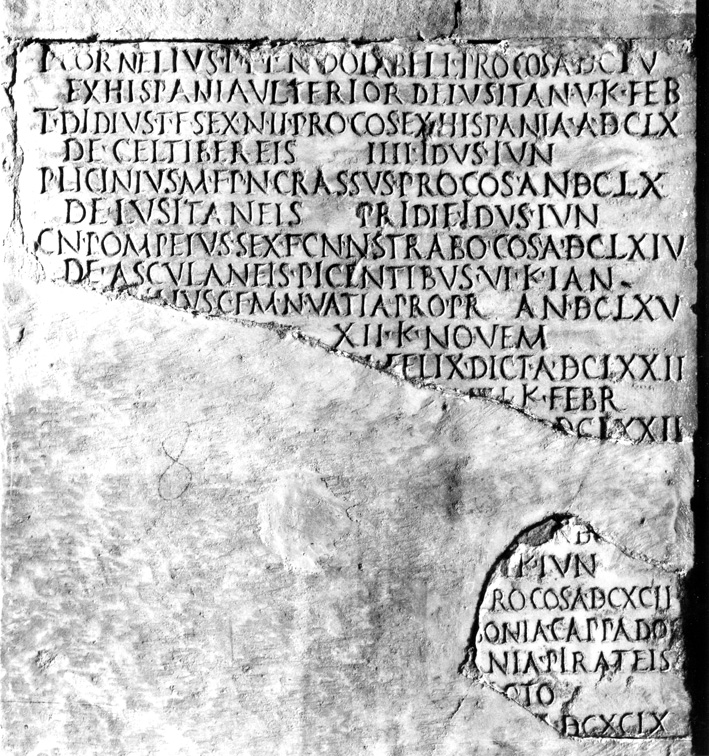 P·CORNELIVS·P·F·P·N·DOLABELL·PRO·COS·A·DCLV
EX·HISPANIA·VLTERIOR·DE·LVSITAN·V·K·FEB
T·DIDIVS·T·F·SEX·N·II·PRO·COS·EX·HISPANIA·A·DCLX
DE·CELTIBEREIS IIII·IDVS·IVN
P·LICINIVS·M·F·P·N·CRASSVS·PRO·COS·AN·DCLX
DE·LVSITANEIS PRIDIE·IDVS·IVN
CN·POMPEIVS·SEX·F·CN·N·STRABO·COS·A·DCLXIV
DE·ASCVLANEIS·PICENTIBVS·VI·K·IAN
IVS·C·F·M·N·VATIA·PRO·PR AN·DCLXV
XII·K·NOVEM
FELIX·DICT·A·DCLXXII
K·FEBR
DCLXXII
K·IVN
RO·COS·A·DCXCII
ONIA·CAPPADO
NIA·PIRATEIS
CTO
DCXCIX